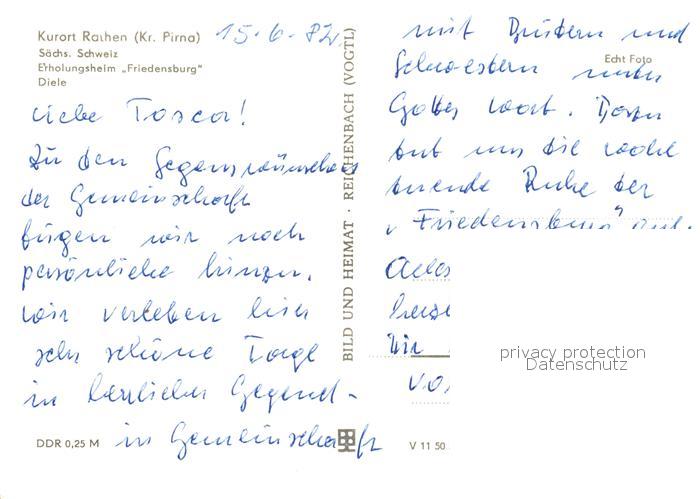 Kurort Rathen (Kr. Pirna) 15.6.82
Sächs. Schweiz
Erholungsheim „Friedensburg"
Diele
Liebe Tosca!
Zu den Segenswünschen
der Gemeinschaft
fügen wir noch
persönliche hinzu.
Wir verleben hier
sehr schöne Tage
in herrlicher Gegend -
in Gemeinschaft
DDR 0,25 M
BILD UND HEIMAT · REICHENBACH (VOGTL)
mit Brüdern und
Echt Foto
Schwestern unter
Gottes Wort. Dazu
tut uns die wohl
tuende Ruhe der
„Friedensburg" gut.
Alles
herzl
Wir
V 11 50
privacy protection
Datenschutz